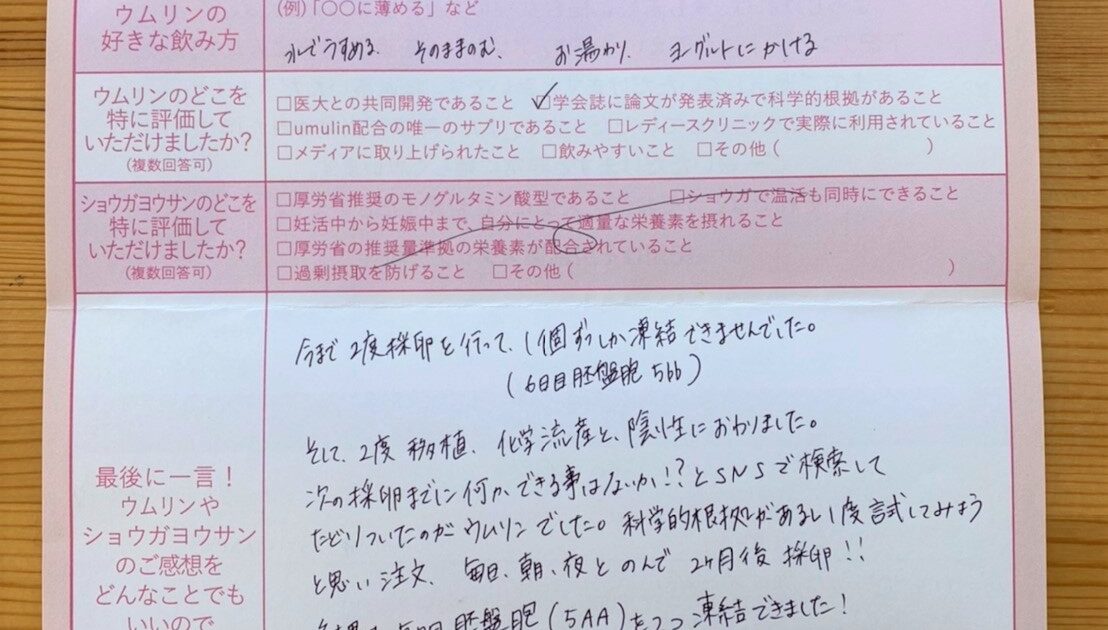 ウムリンの
好きな飲み方
(例)「〇〇に薄める」など
水でうすめる そのままのむ、 お湯わり、 ヨーグルトにかける
ウムリンのどこを
特に評価して
いただけましたか?
(複数回答可)
□医大との共同開発であること □学会誌に論文が発表済みで科学的根拠があること
□umulin配合の唯一のサプリであること □レディースクリニックで実際に利用されていること
□メディアに取り上げられたこと □飲みやすいこと □その他( )
ショウガヨウサンのどこを
特に評価して
いただけましたか?
(複数回答可)
□厚労省推奨のモノグルタミン酸型であること □ショウガで温活も同時にできること
□妊活中から妊娠中まで、自分にとって適量な栄養素を摂れること
□厚労省の推奨量準拠の栄養素が配合されていること
□過剰摂取を防げること □その他( )
最後に一言!
ウムリンや
ショウガヨウサン
のご感想を
どんなことでも
いいので
今まで2度採卵を行って、1個ずつしか凍結できませんでした。
(6日目胚盤胞 5bb)
そして、2度移植、化学流産と、陰性におわりました。
次の採卵までに何かできる事はないか!?とSNSで検索して
たどりついたのがウムリンでした。科学的根拠があるし1度試してみよう
と思い注文、毎日、朝、夜とのんで2ヶ月後採卵!!
胚盤胞(5AA)を2つ凍結できました!